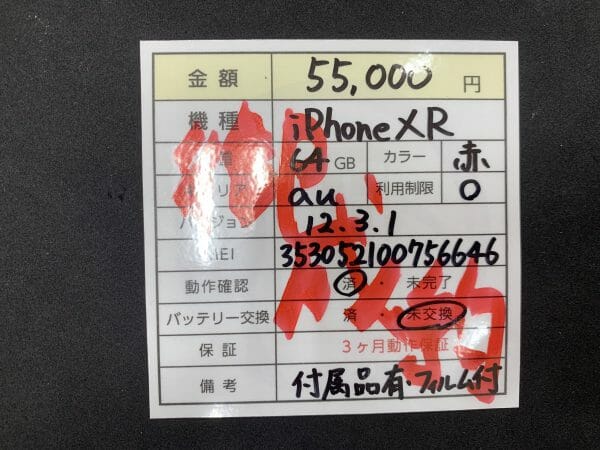 金額 55,000 円
機種 iPhone XR
64 GB カラー 赤
au 利用制限 O
バージョン 12.3.1
IMEI 353052100756646
動作確認 済・未完了
バッテリー交換 済・未交換
保証 3ヶ月動作保証
備考 付属品有・フィルム付